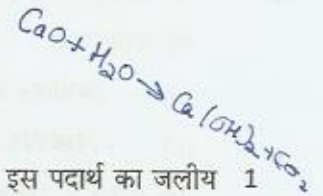 CaO+H2O→Ca(OH)2+CO2
इस पदार्थ का जलीय 1